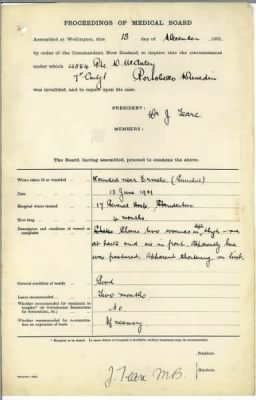 PROCEEDINGS OF MEDICAL BOARD
Assembled at Wellington, this 13 day of December, 1901,
by order of the Commandant, New Zealand, to inquire into the circumstances
under which 4254 Pte. D. McAuley
7th Contgt Portobello Dunedin
was invalided, and to report upon his case.
PRESIDENT:
Dr J. Teare
MEMBERS:
The Board having assembled, proceed to examine the above.
Where taken ill or wounded Wounded near Ermelo
When 13 June 1901
Hospital where treated 17 General Hosp. Standerton
How long 4 months
Description and condition of wound or complaint Shows two wounds in thigh - one
at back and one in front. Apparently bone
was fractured. Apparent shortening in limb.
General condition of health Good
Leave recommended Two months
Whether recommended for treatment in hospital* (at Government
No.
Whether recommended for re-examination on expiration of leave If necessary
President.
Member.
J. Teare M.B.